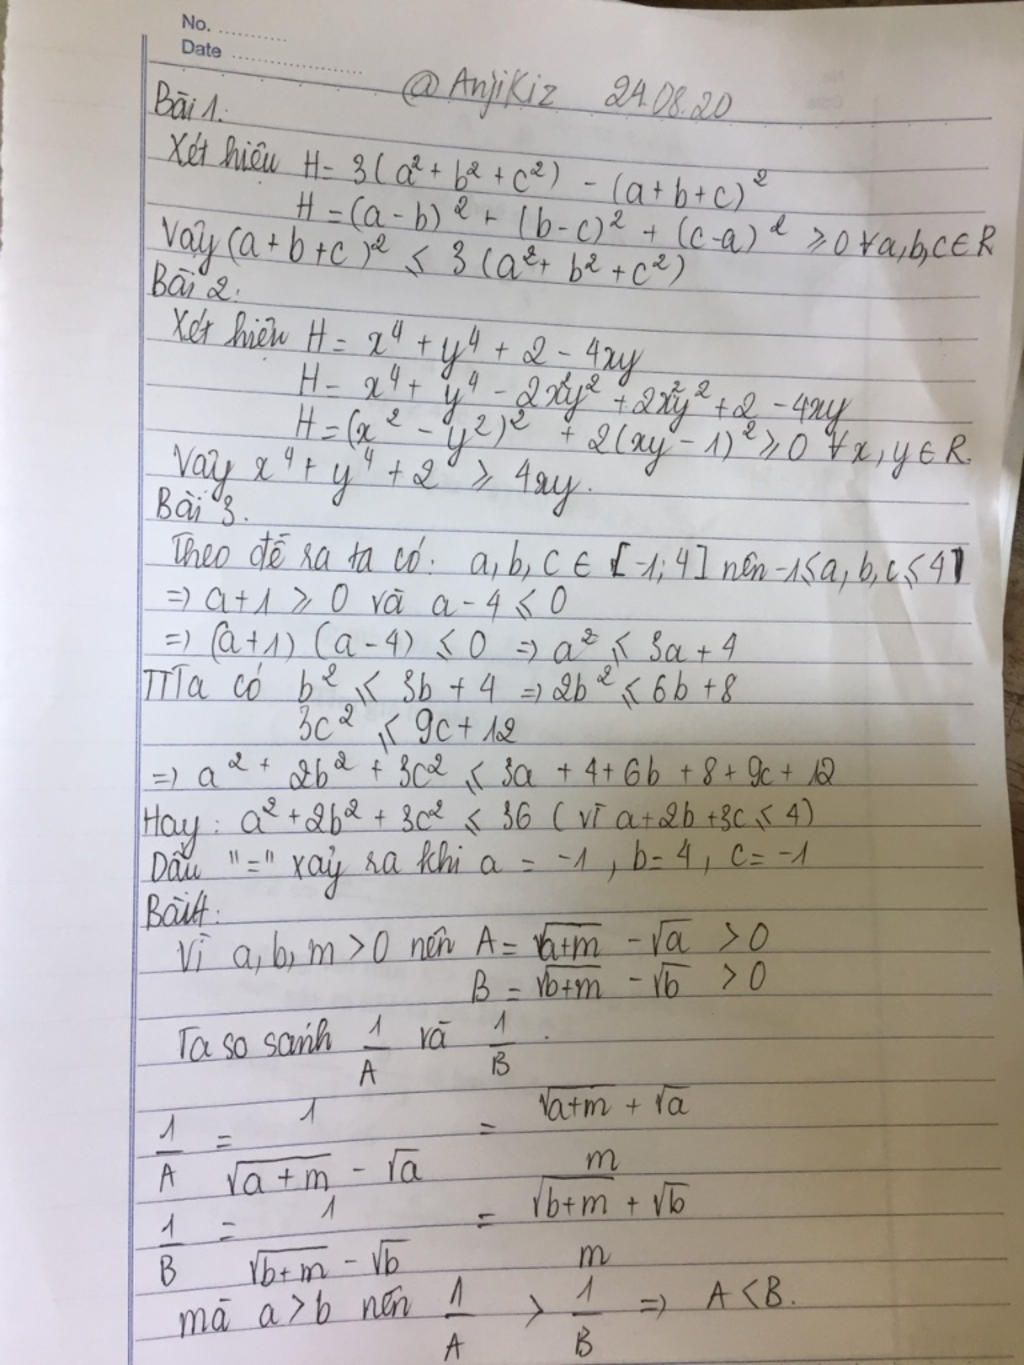 No. ..........
Date ....................
@AnjiKiz 24.08.20
Bài 1:
Xét hiệu H = 3(a² + b² + c²) - (a + b + c)²
H = (a - b)² + (b - c)² + (c - a)² ≥ 0 ∀a,b,c∈R
Vậy (a + b + c)² ≤ 3(a² + b² + c²)
Bài 2.
Xét hiệu H = x⁴ + y⁴ + 2 - 4xy
H = x⁴ + y⁴ - 2x²y² + 2x²y² + 2 - 4xy
H = (x² - y²)² + 2(xy - 1)² ≥ 0 ∀x,y∈R.
Vậy x⁴ + y⁴ + 2 ≥ 4xy.
Bài 3.
Theo đề ra ta có: a,b,c ∈ [-1;4] nên -1≤a,b,c≤4
=> a+1 ≥ 0 và a-4 ≤ 0
=> (a+1) (a-4) ≤ 0 => a² ≤ 3a + 4
TTTa có b² ≤ 3b + 4 => 2b² ≤ 6b+8
3c² ≤ 9c + 12
=> a² + 2b² + 3c² ≤ 3a + 4 + 6b + 8 + 9c + 12
Hay: a² + 2b² + 3c² ≤ 36 (vì a+2b+3c ≤ 4)
Dấu "=" xảy ra khi a = -1, b = 4, c = -1
Bài 4:
Vì a,b,m > 0 nên A = √(a+m) - √a > 0
B = √(b+m) - √b > 0
Ta so sánh 1/A và 1/B.
1/A = 1/(√(a+m) - √a) = (√(a+m) + √a)/m
1/B = 1/(√(b+m) - √b) = (√(b+m) + √b)/m
mà a > b nên 1/A > 1/B => A < B.